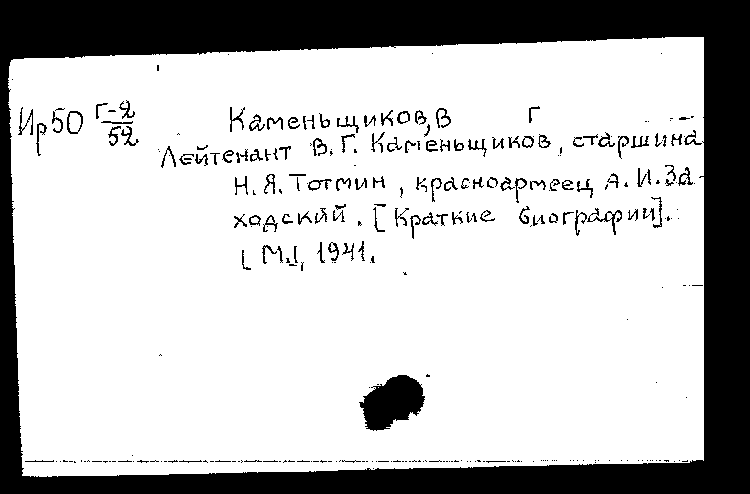 Ир50 Г-2/52 Каменьщиков, В Г
Лейтенант В. Г. Каменьщиков, старшина
Н. Я. Тотмин, красноармеец А. И. За-
ходский. [Краткие биографии].
[М.], 1941.